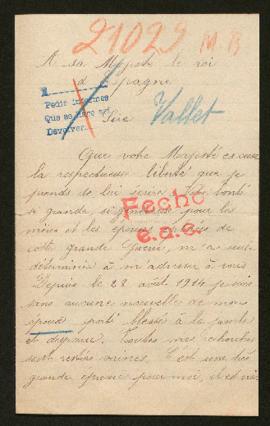 21022 M B
A sa Majesté le roi
d'Espagne
Pedir informes
Devolver
Sire Vallet
Que votre Majesté excuse
la respectueuse liberté que je
prends de lui écrire. Votre bonté
si grande, si pour les
mères et les épouses de
cette grande guerre, m'a
déterminée à m'adresser à vous
Fecho
e.a.c.
Depuis le 28 août 1914 je suis
sans aucune nouvelle de mon
époux porté blessé à la jambe
et disparu. Toutes mes recherches
sont restées vaines. C'est une très
grande épreuve pour moi, et